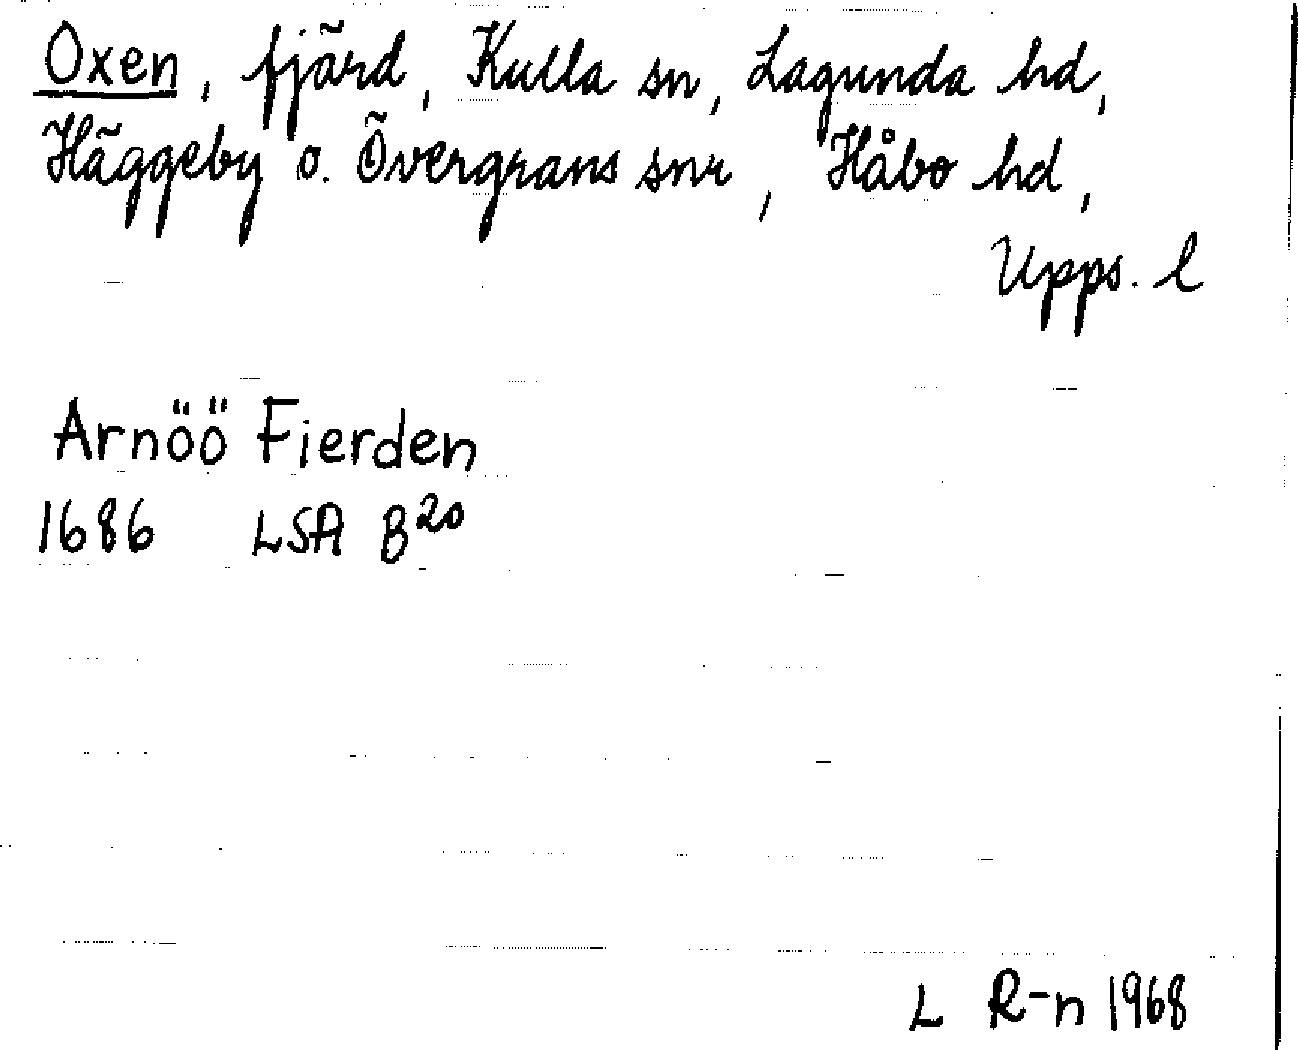 Oxen, fjärd, Kulla sn, Lagunda hd,
Häggeby o. Övergrans snr, Håbo hd,
Upps. l
Arnöö Fierden
1686 LSA B20
L R-n 1968